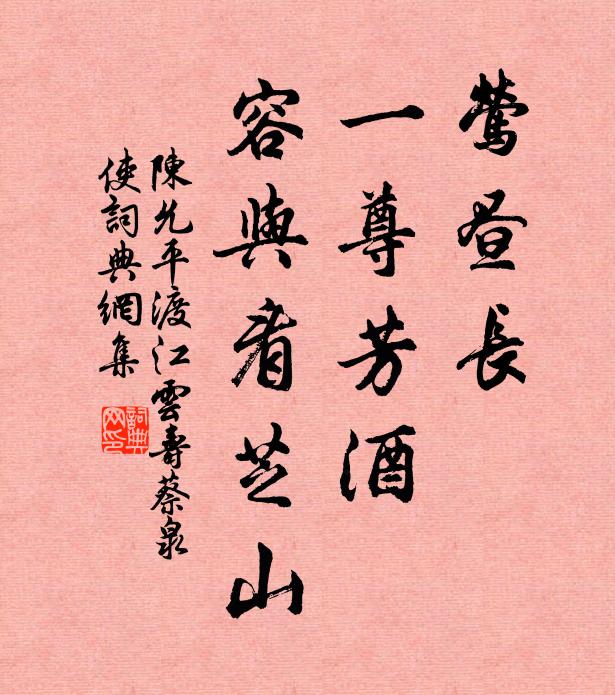 鶯晝長
一尊芳酒
容與看芝山
陳允平渡江雲壽蔡泉
使詞典網集
詞典网印